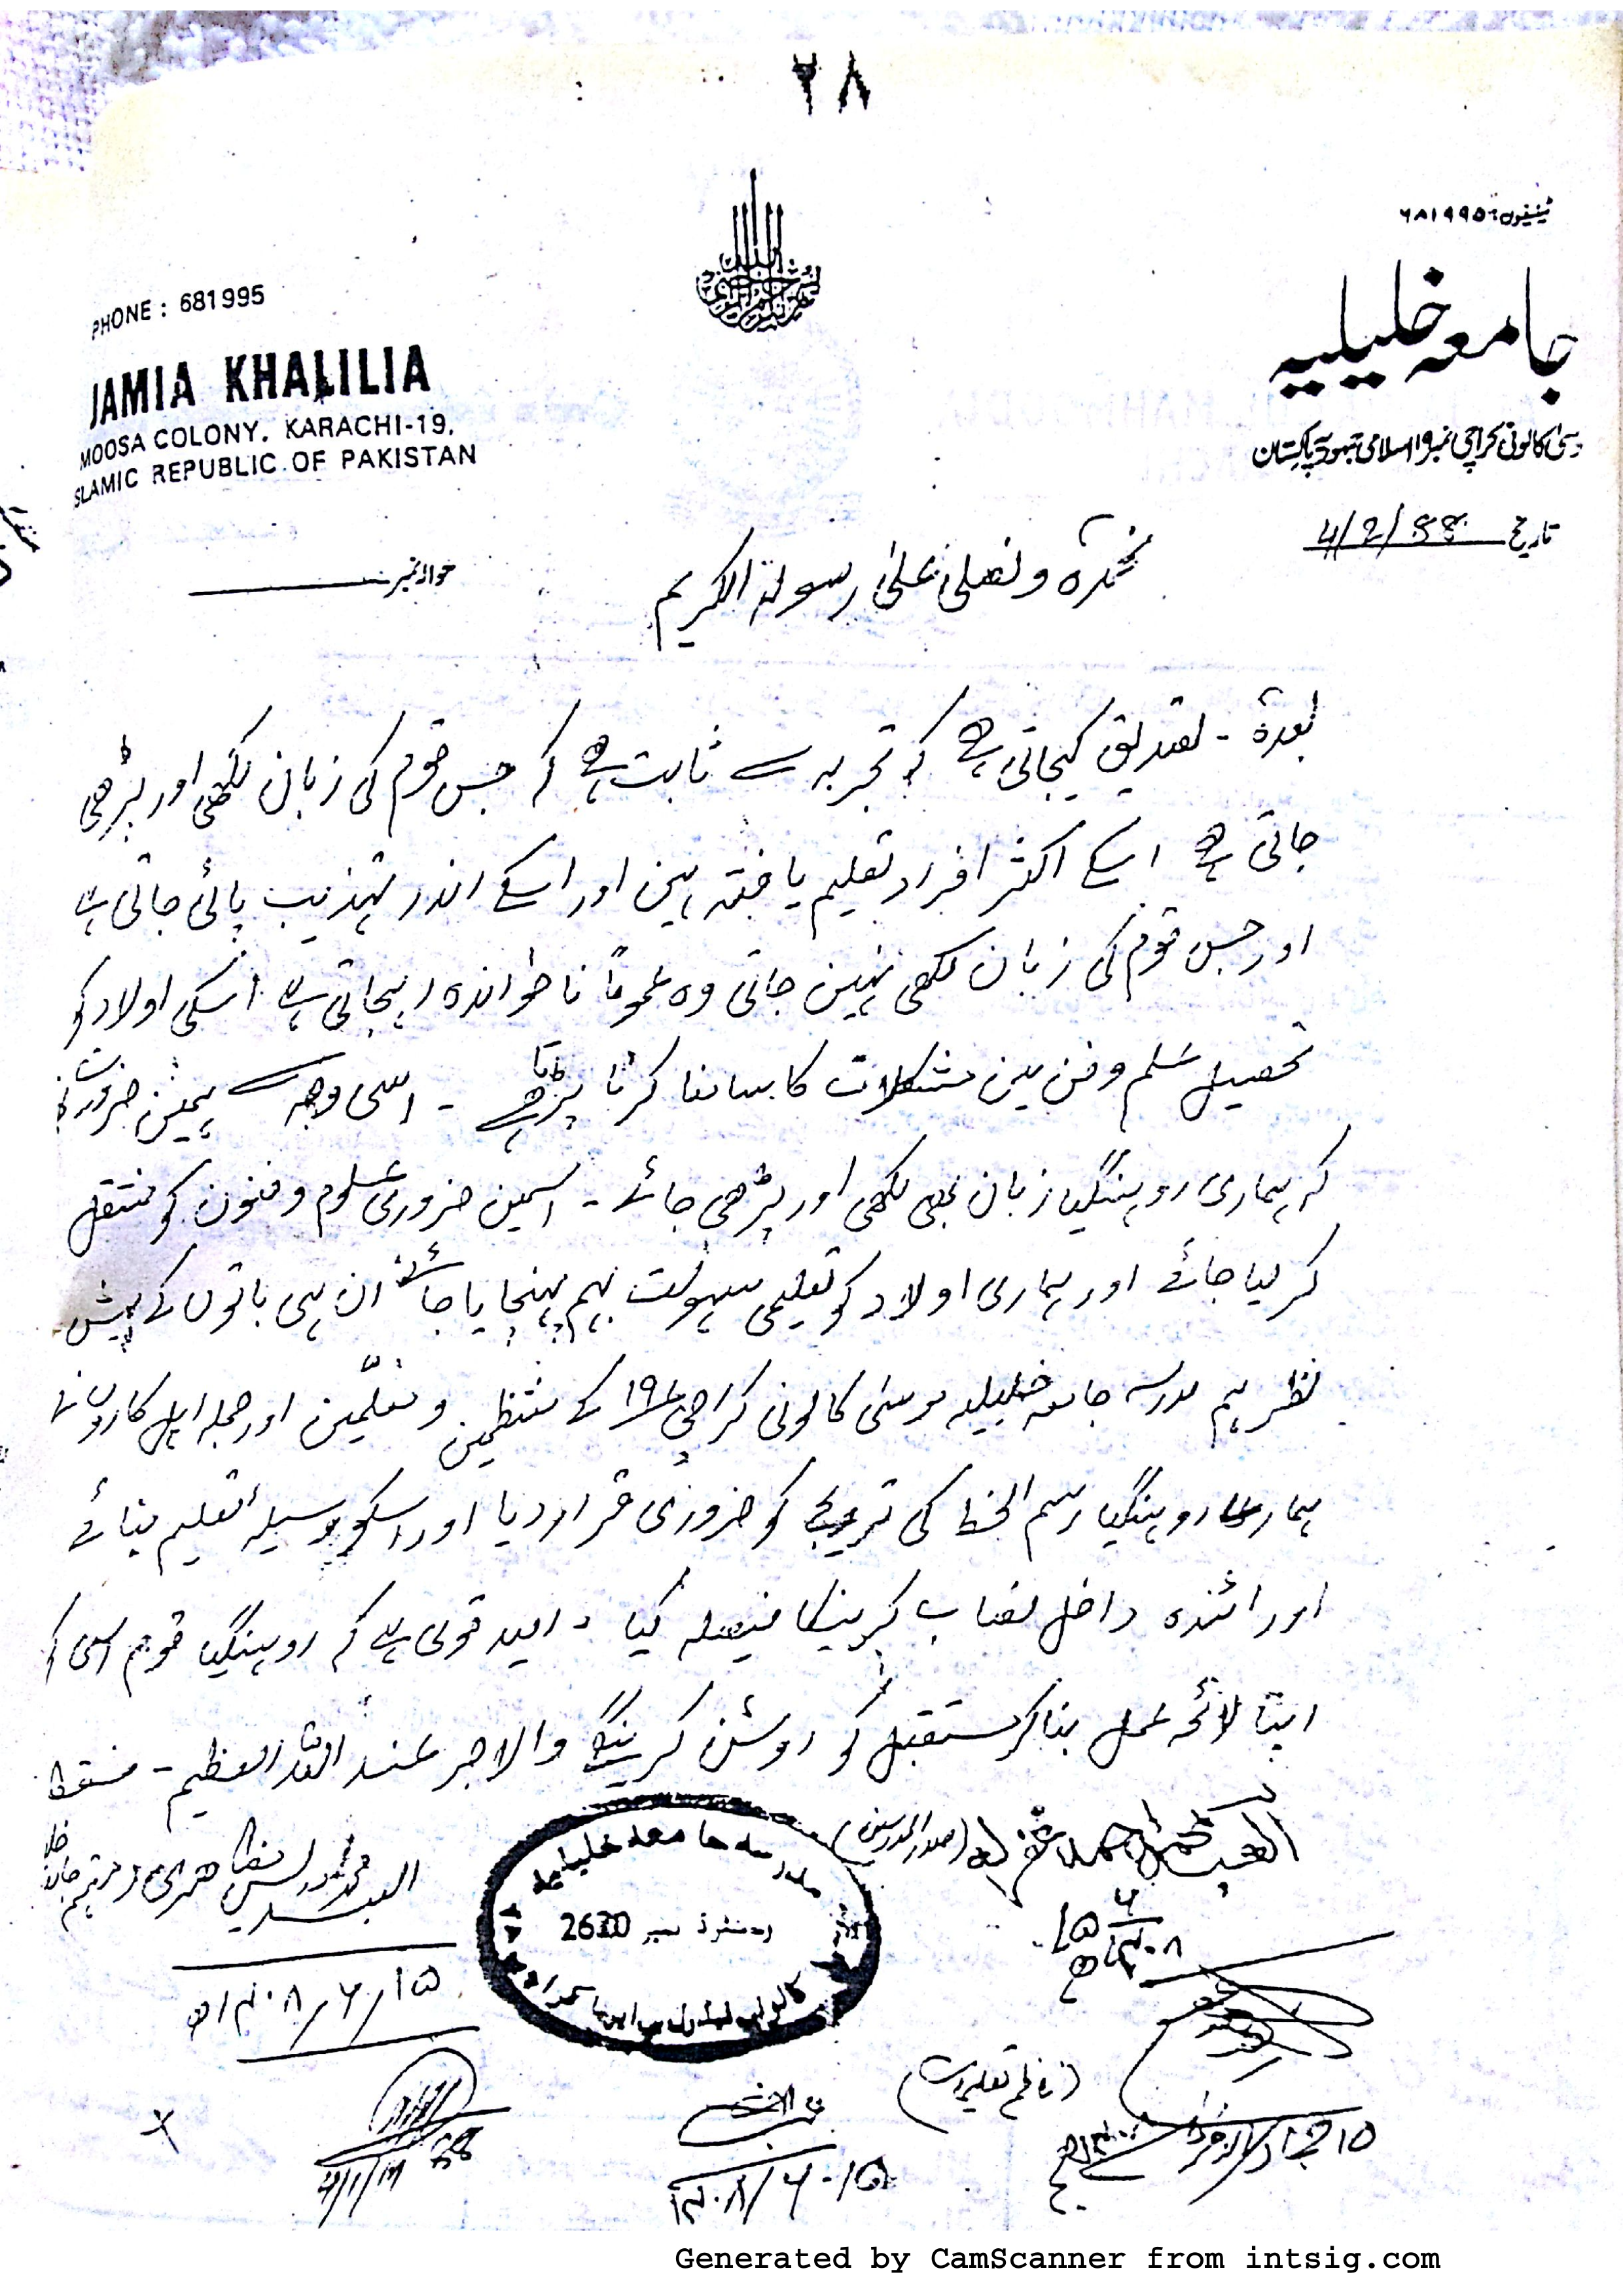 ۲۸
ٹیلیفون: ۶۸۱۹۹۵
PHONE : 681995
جامعہ خلیلیہ
JAMIA KHALILIA
MOOSA COLONY. KARACHI-19.
SLAMIC REPUBLIC OF PAKISTAN
سیٰ کالونی کراچی نمبر ۱۹ اسلامی جمہوریہ پاکستان
تاریخ 4/2/88
حوالہ نمبر
نحمدہ و نصلی علیٰ رسولہ الکریم
بعدہ - تصدیق کیجاتی ہے کہ تجربہ سے ثابت ہے کہ جس قوم کی زبان لکھی اور پڑھی
جاتی ہے اسکے اکثر افراد تعلیم یافتہ ہین اور اسکے اندر تہذیب پائی جاتی ہے
اور جس قوم کی زبان لکھی نہین جاتی وہ عموماً ناخواندہ رہجاتی ہے اسکی اولاد کو
تحصیل علم و فن مین مشکلات کا سامنا کرنا پڑتا ہے - اسی وجہ سے ہمین ضرورت
کہ ہماری روہنگیا زبان بھی لکھی اور پڑھی جائے - اسمین ضروری علوم و فنون کو منتقل
کر لیا جائے اور ہماری اولاد کو تعلیمی سہولت بہم پہنچایا جائے ان ہی باتوں کے پیش
نظر ہم مدرسہ جامعہ خلیلیہ موسیٰ کالونی کراچی ۱۹ کے منتظمین و معلّمین اور جملہ اہل کاروں نے
ہماری روہنگیا رسم الخط کی ترویج کو ضروری قرار دیا اور اسکو وسیلہ تعلیم بنانے
اور ائندہ داخل نصاب کرینکا فیصلہ کیا - امید قوی ہے کہ روہنگیا قوم اسی کو
اپنا لائحہ عمل بنا کر مستقبل کو روشن کرینگے والاجر عند اللہ العظیم - فقط
العبد احمد غفر لہ (صدر المدرسین)
۱۵/۶/۱۴۰۸ھ
مدرسہ جامعہ خلیلیہ
رجسٹرڈ نمبر 2630
العبد محمد ادریس مظاہری مہتمم جامعہ
۱۵/۶/۱۴۰۸ھ
(ناظم تعلیمات)
۱۵/۶/۱۴۰۸
Generated by CamScanner from intsig.com